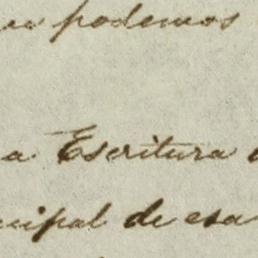 podemos
a Escritura
de esa